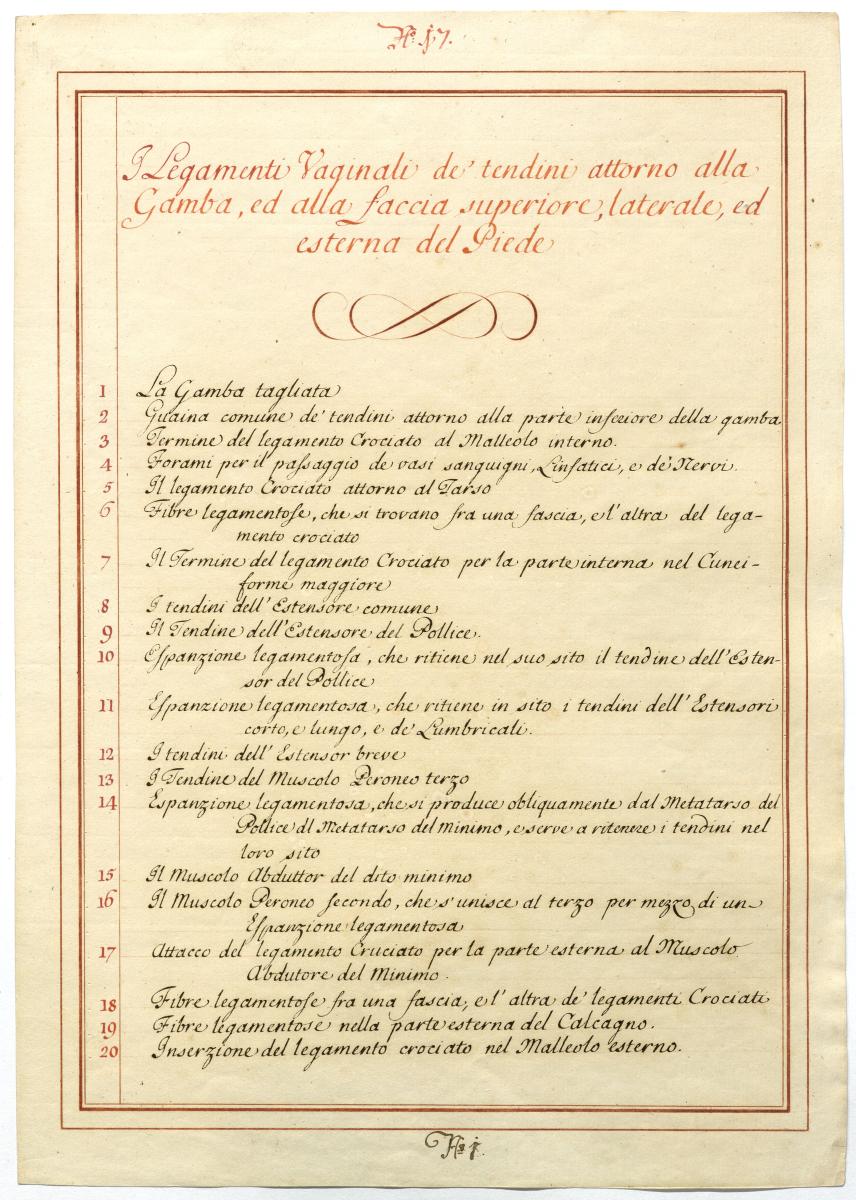 N.º 17.
I Legamenti Vaginali de' tendini attorno alla
Gamba, ed alla faccia superiore, laterale, ed
esterna del Piede
1 La Gamba tagliata
2 Guaina comune de' tendini attorno alla parte inferiore della gamba
3 Termine del legamento Crociato al Malleolo interno.
4 Forami per il passaggio de vasi sanguigni, Linfatici, e de' Nervi.
5 Il legamento Crociato attorno al Tarso
6 Fibre legamentose, che si trovano fra una fascia, e l'altra del lega-
mento crociato
7 Il Termine del legamento Crociato per la parte interna nel Cunei-
forme maggiore
8 I tendini dell'Estensore comune
9 Il Tendine dell'Estensore del Pollice.
10 Espanzione legamentosa, che ritiene nel suo sito il tendine dell'Esten-
sor del Pollice
11 Espanzione legamentosa, che ritiene in sito i tendini dell'Estensori
corto, e lungo, e de' Lumbricali.
12 I tendini dell'Estensor breve
13 I Tendine del Muscolo Peroneo terzo
14 Espanzione legamentosa, che si produce obliquamente dal Metatarso del
Pollice al Metatarso del minimo, e serve a ritenere i tendini nel
loro sito
15 Il Muscolo Abduttor del dito minimo
16 Il Muscolo Peroneo secondo, che s'unisce al terzo per mezzo di un
Espanzione legamentosa
17 Attacco del legamento Cruciato per la parte esterna al Muscolo
Abdutore del Minimo.
18 Fibre legamentose fra una fascia, e l'altra de' legamenti Crociati
19 Fibre legamentose nella parte esterna del Calcagno.
20 Inserzione del legamento crociato nel Malleolo esterno.